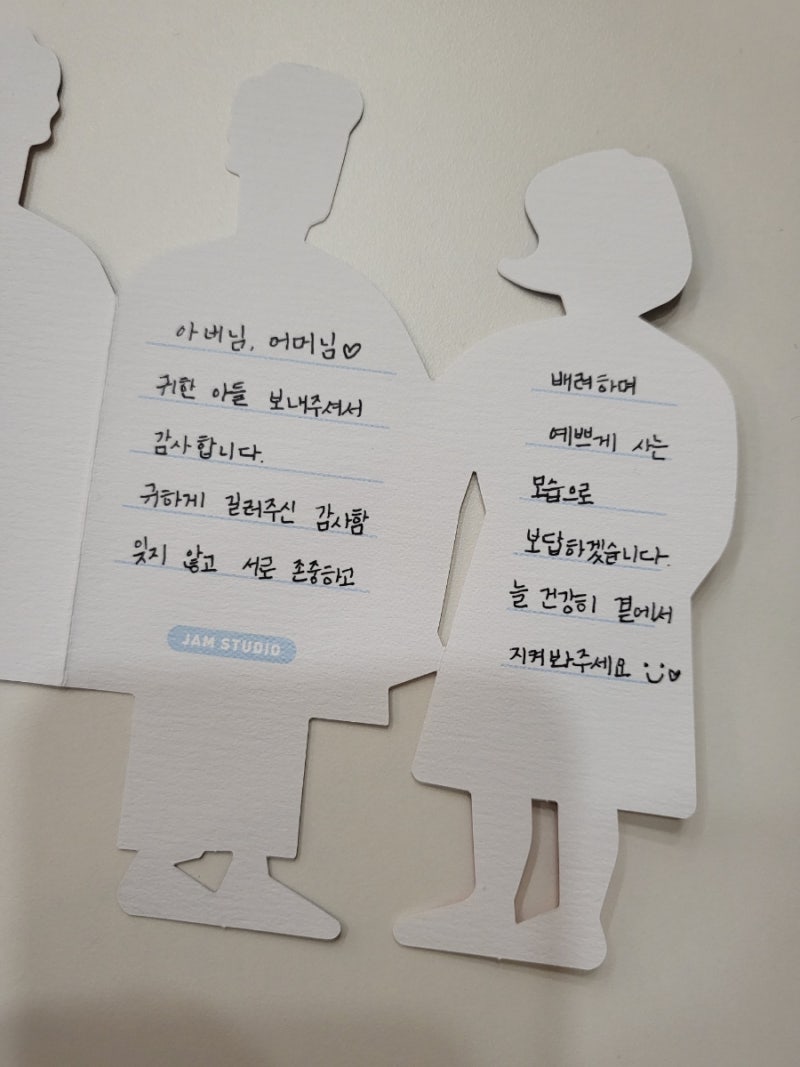 아버님, 어머님♡
귀한 아들 보내주셔서
감사합니다.
귀하게 길러주신 감사함
잊지 않고 서로 존중하고
JAM STUDIO
배려하며
예쁘게 사는
모습으로
보답하겠습니다.
늘 건강히 곁에서
지켜봐주세요 :)♡